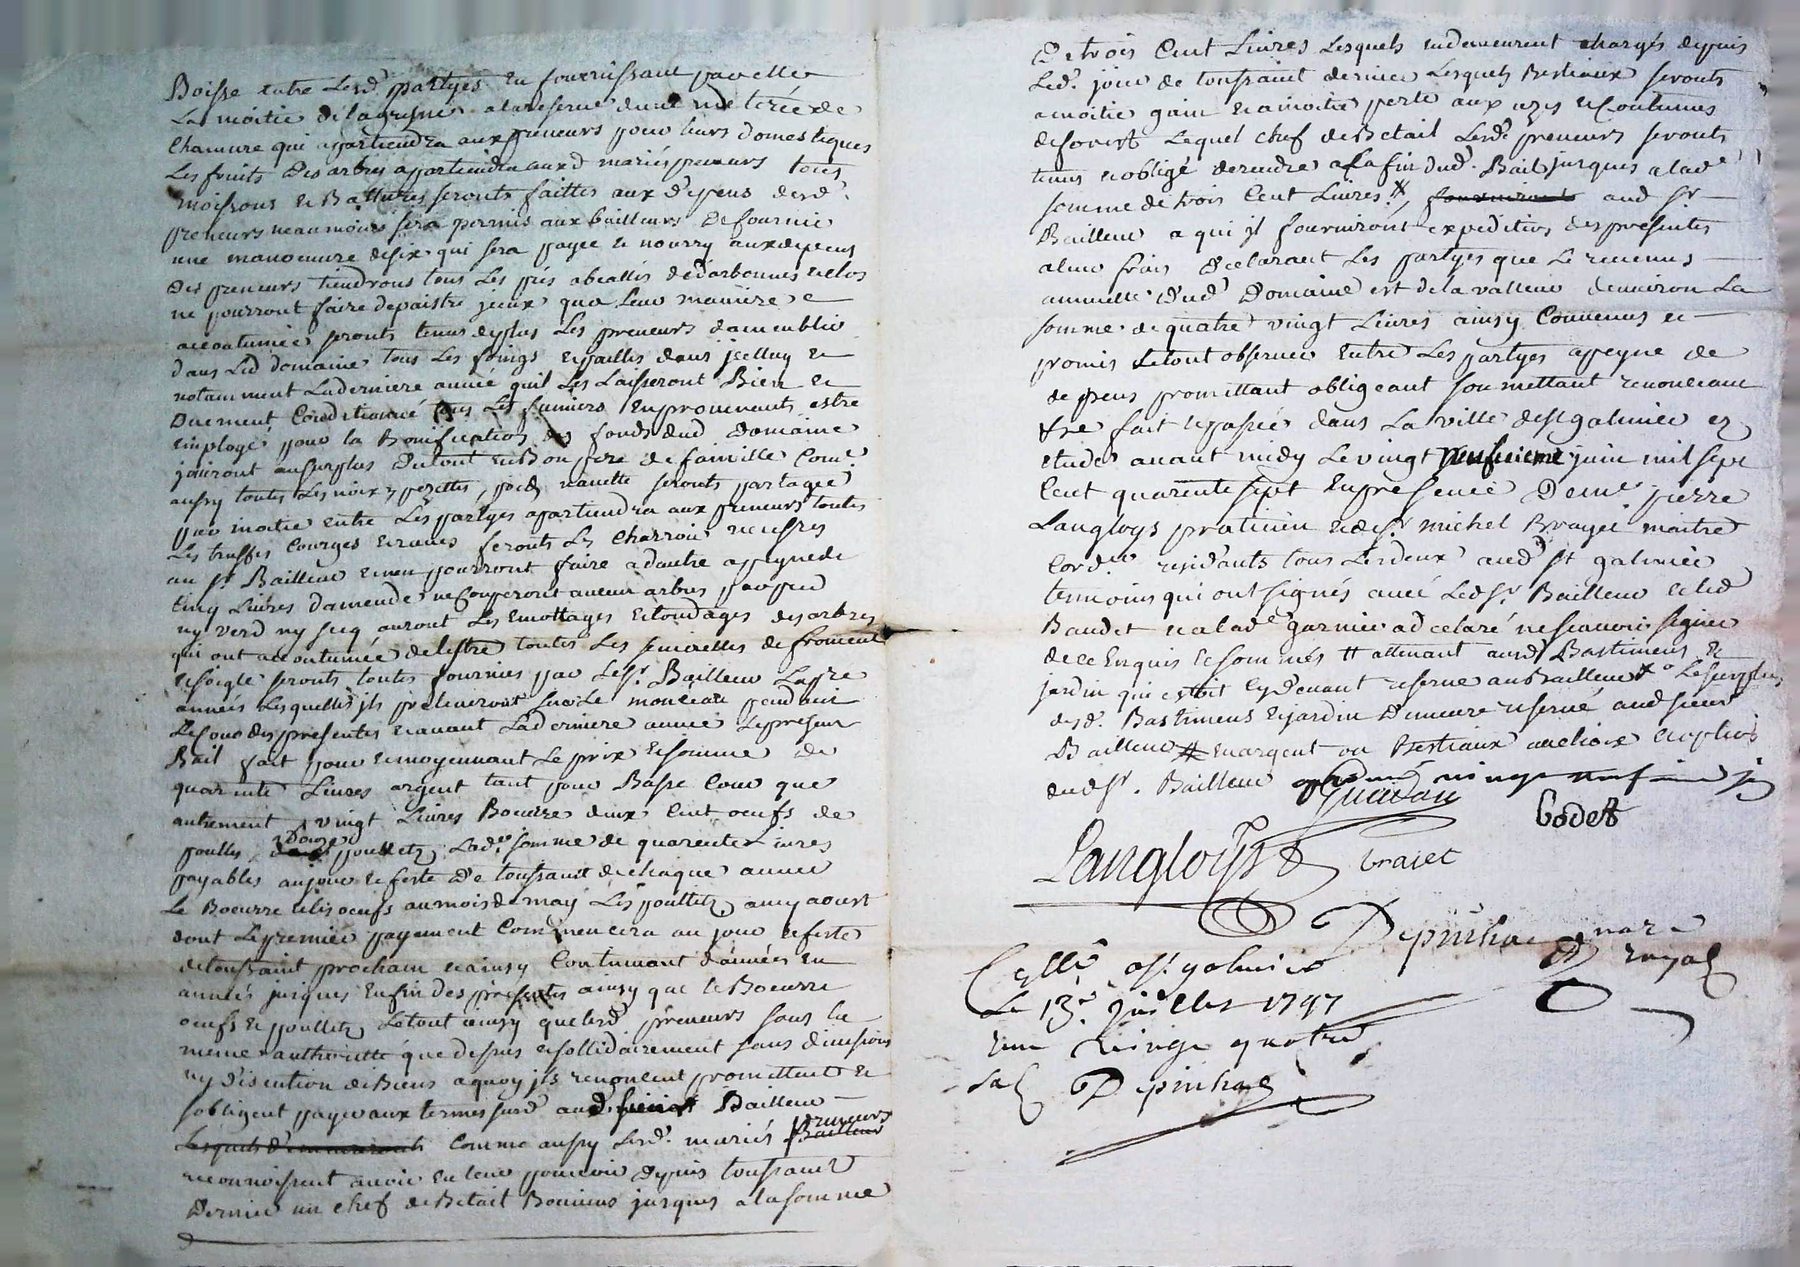 Boisse entre Lesd. partyes En fournissant par elles
La moitié de la graine a la reserve d'une meterée de
Chanure qui apartiendra aux preneurs pour leurs domestiques
Les fruits Des arbres appartiendra auxd mariés preneurs toutes
moissons et Battures seronts faittes aux d'epens desd.
preneurs neanmoins sera permis aux bailleurs De fournir
une manoeuvre desix qui sera payée et nourry aux depens
Des preneurs tiendronts tous Les prés et clos
ne pourront faire depaistre jceux qua leur maniere
accoutumée seronts tenus deplus Les preneurs
dans Led domaine tous Les foings et pailles dans jcelluy et
notamment Laderniere année quil Les Laisseront Bien et
Duement Conditionné tous Les fumiers Enprouenants estre
employé pour la Bonification des fonds dud Domaine
jouiront ausurplus Dutout en Bon pere de famille Come
aussy toutes Les noix, pezettes, navette seronts partagée
par moitié entre Les partyes apartiendra aux preneurs toutes
Les truffes Courges et raves feronts Les Charrois necessres
au sr Bailleur et nen pourront faire a dautre appeyne de
Cinq Livres d'amende ne Couperont aucun arbres par pied
ny verd ny secq auront Les Emottages et tondages des arbres
qui ont accoutumée de lestre toutes Les semailles de froment
et soigle seronts toutes fournies par Le sr. Bailleur
années Lesquelles jls preleveront sur Le monceau pendant
Le Cours des presentes et auant Laderniere année Le present
Bail fait pour et moyennant Le prix et somme de
quarente Livres argent tant pour Basse Cour que
autrement vingt Livres Boeurre deux Cent oeufs de
poulles, Douze poullets, Lade. somme de quarente Livres
payables au jour et feste De toussaint de chaque année
Le Boeurre et les oeufs au mois de may Les poullets aumy aoust
dont Le premier payement Commencera au jour et feste
de toussaint prochain et ainsy Continuant d'années En
années jusques Enfin des presentes ainsy que le Boeurre
oeufs et poullets Le tout ainsy que Lesd. preneurs sous la
meme authorité que dessus et sollidairement sans diuision
ny discution de Biens a quoy jls renoncent promettent et
sobligent payer aux termes susd aud. sieur Bailleur
Lesquels Comme aussy Lesd. mariés preneurs
reconnoissent auoir En leur pouvoir depuis toussaint
Dernier un chef de Betail Bouvins jusques a la somme
De trois Cent Livres Lesquels Endemeurent chargés depuis
Led. jour de toussaint dernier Lesquels Bestiaux seronts
a moitié gain et a moitié perte aux uzes et Coutumes
de forest Lequel chef de Betail Lesd. preneurs seronts
tenus et obligé de rendre a la fin dud. Bail jusques a lade
somme de trois Cent Livres fourniront aud Sr
Bailleur a qui jl fourniront expedition des presentes
a leur frais Declarant Les partyes que Le reuenus
annuelle Dud. Domaine est de la valleur denuiron La
somme de quatre vingt Livres ainsy Conuenus et
promis Letout obseruer Entre Les partyes appeyne de
depens promettant obligeant soumettant renonceant
fait et passée dans La ville de st galmier ez
etudes auant midy Le vingt neufvieme juin mil sept
Cent quarente sept En presence De me pierre
Langloys praticien et de sr michel Brayet maitre
Cord.er residants tous Lesdeux aud st galmier
temoins qui ont signés auec Led sr. Bailleur et led
Baudet et a lade garnier a declaré ne scauoir signer
de ce Enquis et sommés # attenant aud Bastiment et
jardin qui estoit cy deuant reserué aud Bailleur # Le surplus
desd. Bastimens et jardin Demeure reserué aud sieur
Bailleur # En argent ou Bestiaux au choix et option
dud sr. Bailleur
Codet
Langloys
braiet
Depinhac nore
royal
Cllé a st galmier
Le 13e juillet 1747
Reçu vingt quatre
Sols
Depinhac